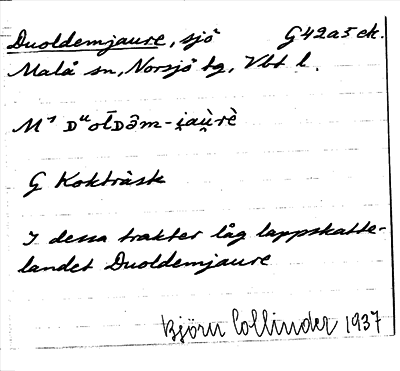 Duoldemjaure, sjö G42a5 ck.
Malå sn, Norsjö tg, Vbt l.
M⁷ ᴅᵘol̄ᴅə̑m-i̯au̯rè
G Kokträsk
I dessa trakter låg lappskatte-
landet Duoldemjaure
Björn Collinder 1937